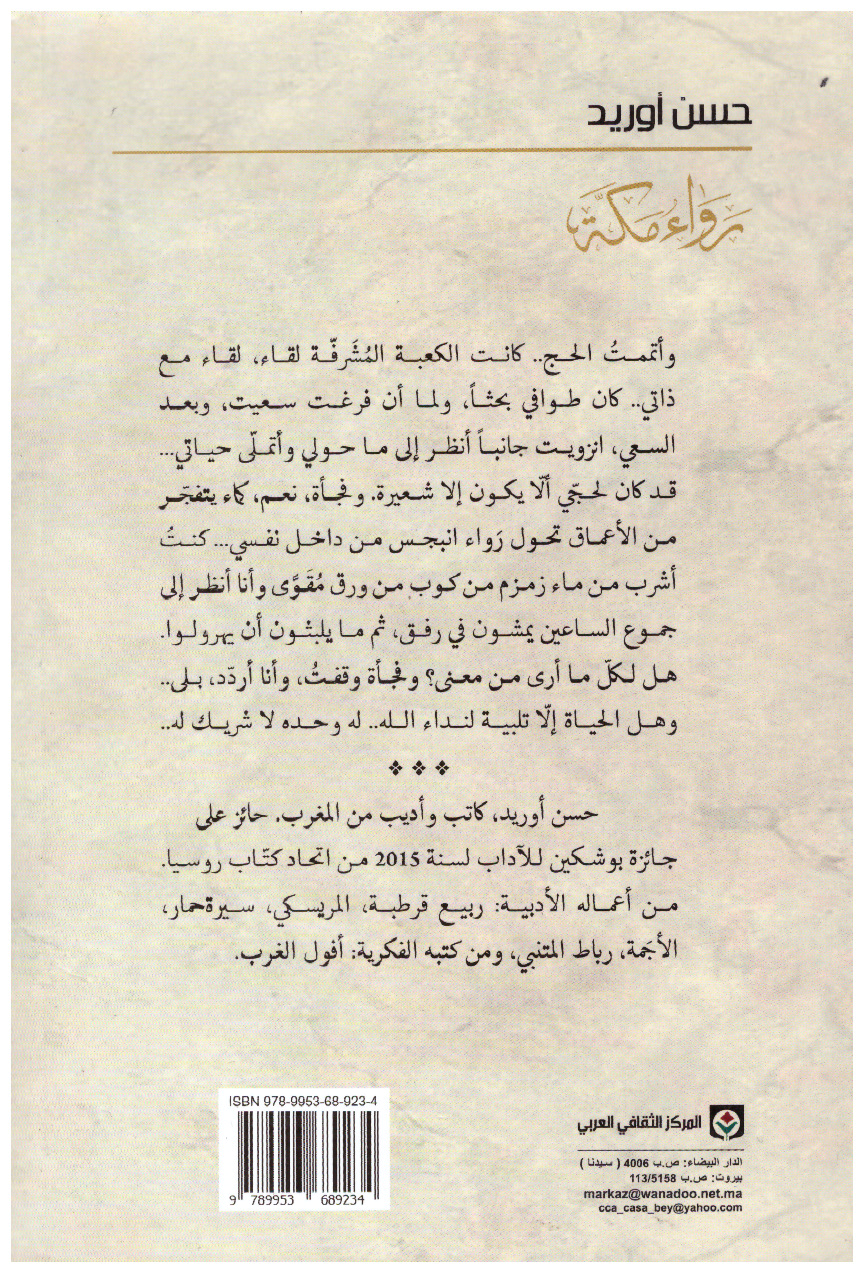 حسن أوريد
رَوَاءُ مَكَّة
وأتممتُ الحج.. كانت الكعبة المُشَرفّة لقاء، لقاء مع
ذاتي.. كان طوافي بحثاً، ولما أن فرغت سعيت، وبعد
السعي، انزويت جانباً أنظر إلى ما حولي وأتملّى حياتي...
قد كان لحجّي ألّا يكون إلا شعيرة. وفجأة، نعم، كماء يتفجّر
من الأعماق تحول رَواء انبجس من داخل نفسي... كنتُ
أشرب من ماء زمزم من كوب من ورق مُقَوًّى وأنا أنظر إلى
جموع الساعين يمشون في رفق، ثم ما يلبثون أن يهرولوا.
هل لكلّ ما أرى من معنى؟ وفجأة وقفتُ، وأنا أردّد، بلى..
وهل الحياة إلّا تلبية لنداء الله.. له وحده لا شريك له..
حسن أوريد، كاتب وأديب من المغرب. حائز على
جائزة بوشكين للآداب لسنة 2015 من اتحاد كتّاب روسيا.
من أعماله الأدبية: ربيع قرطبة، المريسكي، سيرة حمار،
الأجَمة، رباط المتنبي، ومن كتبه الفكرية: أفول الغرب.
ISBN 978-9953-68-923-4
9 789953 689234
المركز الثقافي العربي
الدار البيضاء: ص.ب 4006 ( سيدنا )
بيروت: ص.ب 113/5158
markaz@wanadoo.net.ma
cca_casa_bey@yahoo.com